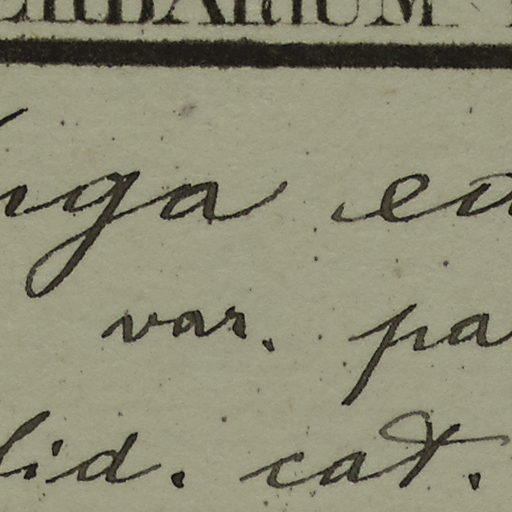 HERBARIUM
nga ea
var. pa
lid. cat.